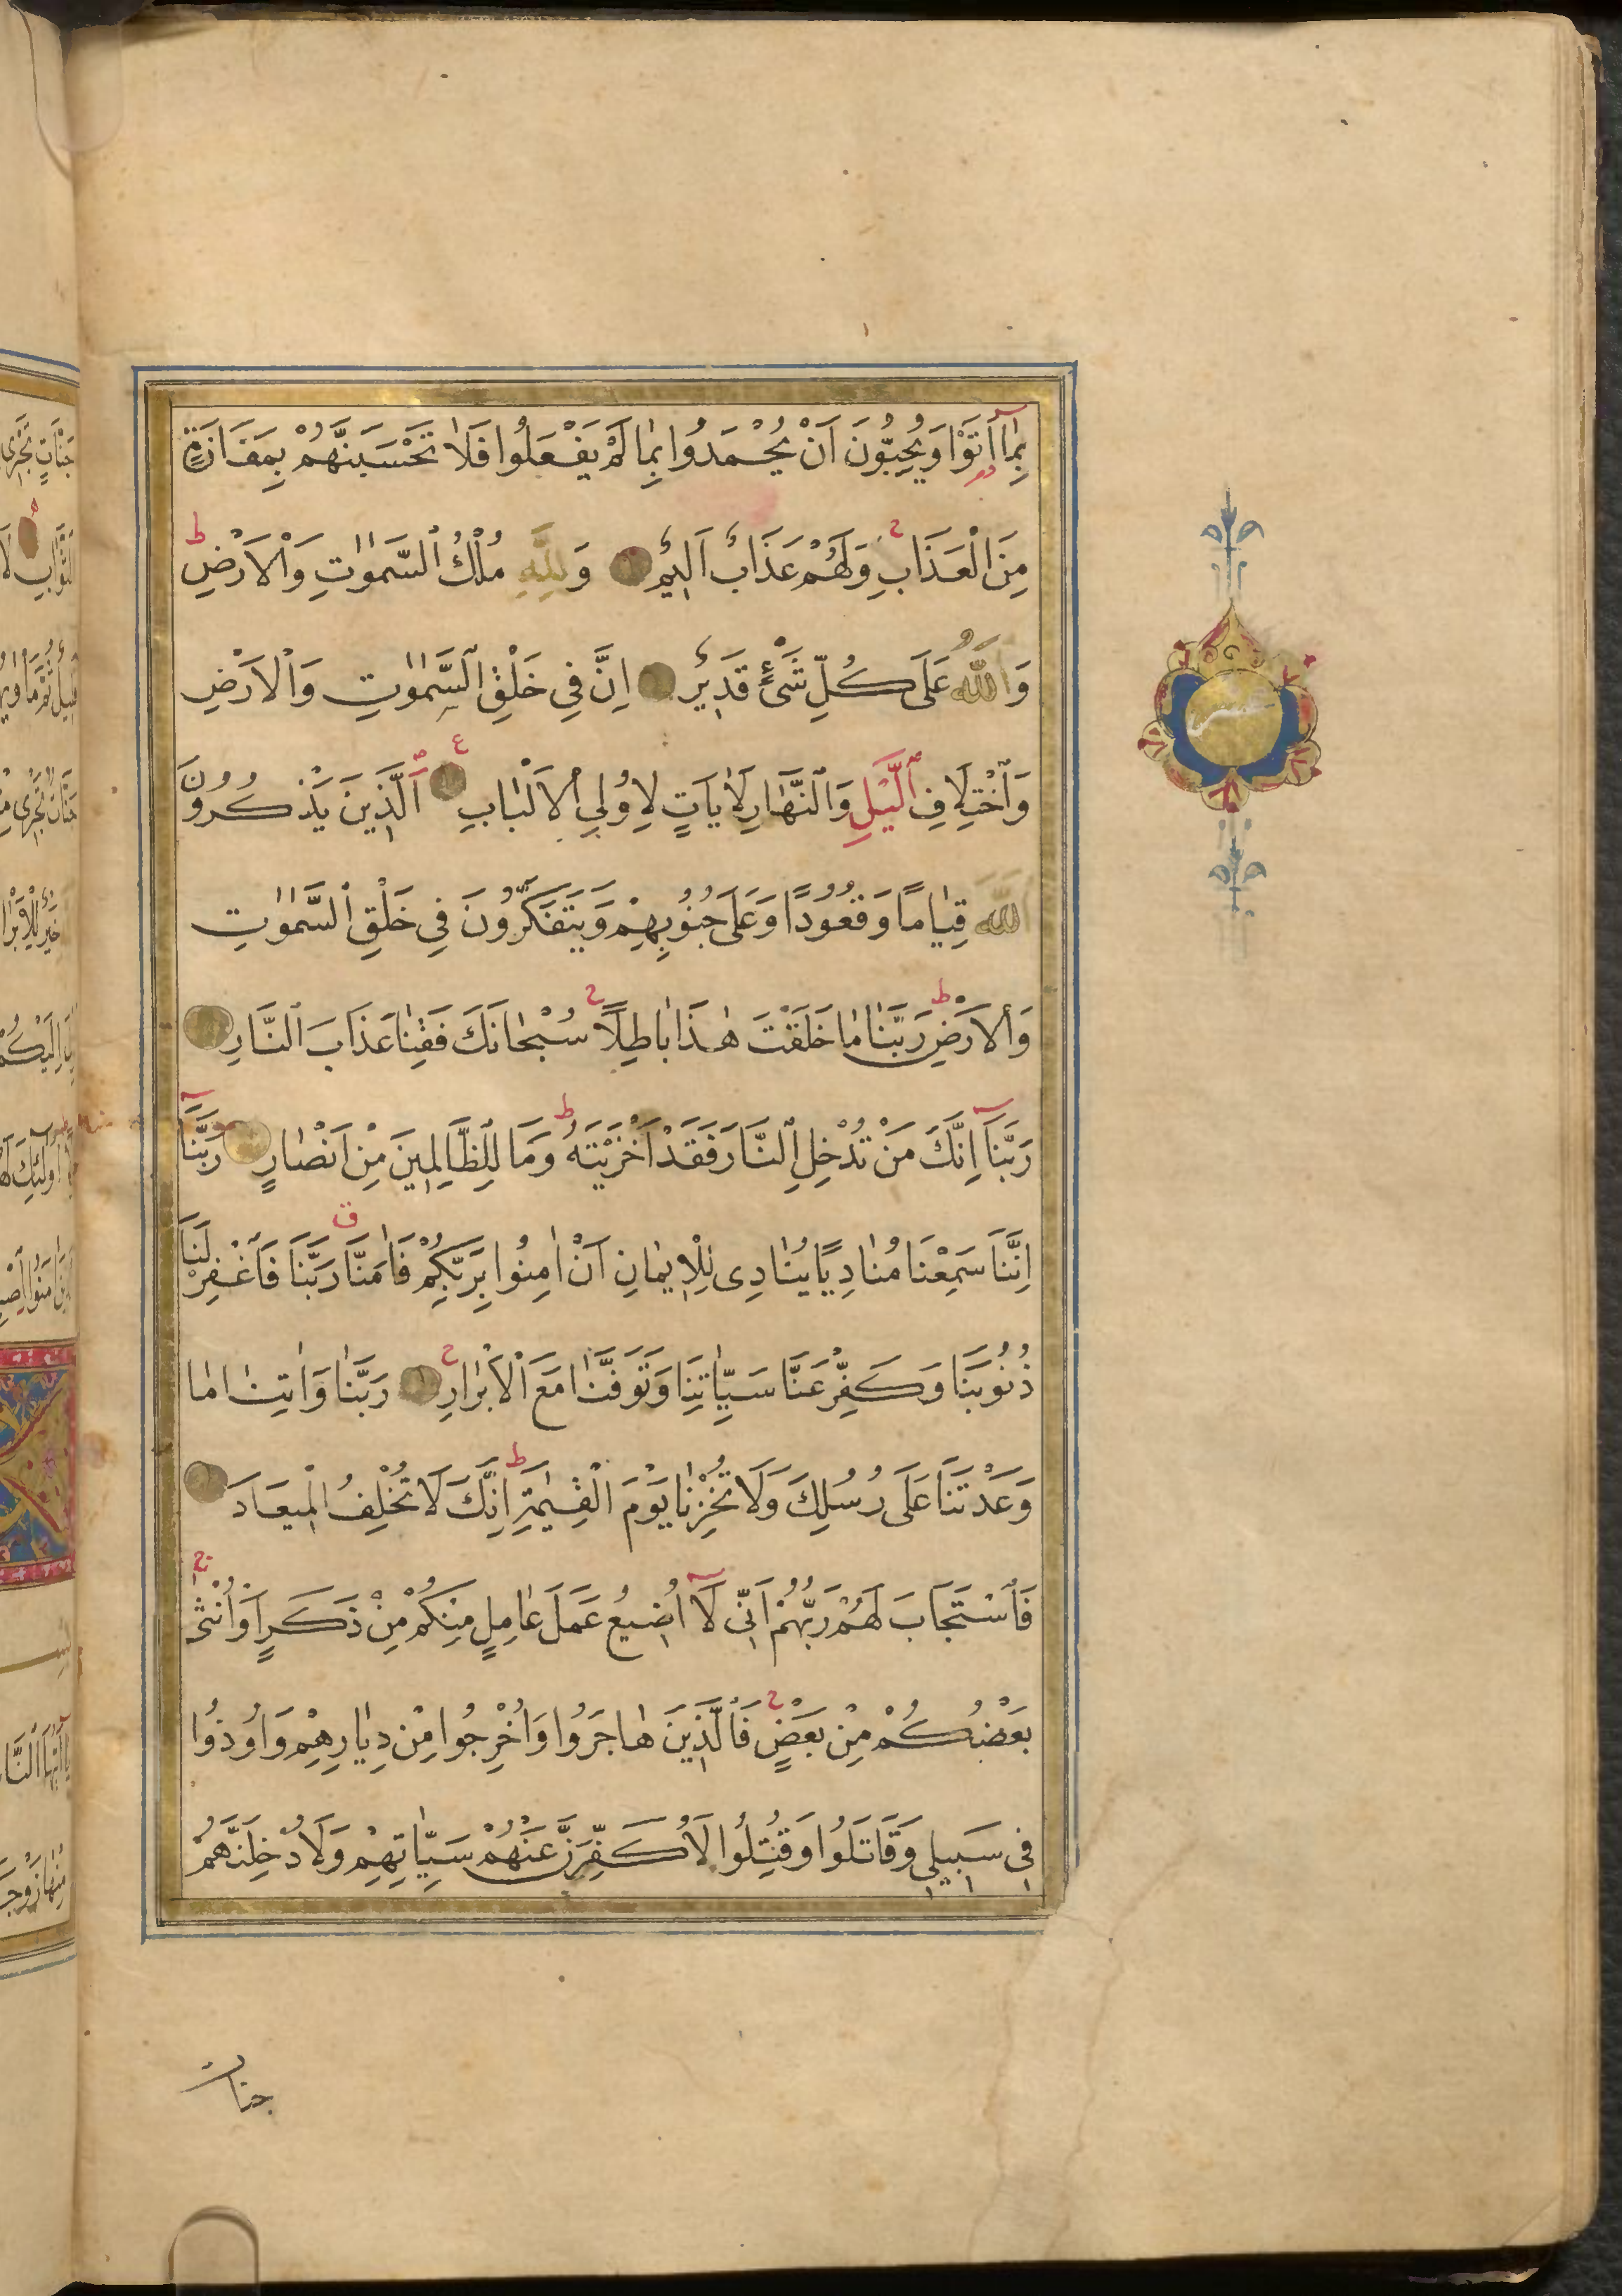 بِمَٓا اَتَوْا وَيُحِبُّونَ اَنْ يُحْمَدُوا بِمٰا لَمْ يَفْعَلُوا فَلٰا تَحْسَبَنَّهُمْ بِمَفَازَةٍ
مِنَ الْعَذَابِ وَلَهُمْ عَذَابٌ اَلِيمٌ وَلِلَّهِ مُلْكُ السَّمٰوٰتِ وَالْاَرْضِ
وَاللَّهُ عَلَى كُلِّ شَىْءٍ قَدِيرٌ اِنَّ فِي خَلْقِ السَّمٰوٰتِ وَالْاَرْضِ
وَاخْتِلَافِ اللَّيْلِ وَالنَّهَارِ لَاٰيَاتٍ لِاُولِي الْاَلْبٰابِ اَلَّذِينَ يَذْكُرُونَ
اللَّهَ قِيٰامًا وَقُعُودًا وَعَلَى جُنُوبِهِمْ وَيَتَفَكَّرُونَ فِي خَلْقِ السَّمٰوٰتِ
وَالْاَرْضِ رَبَّنٰا مٰا خَلَقْتَ هٰذَا بٰاطِلًا سُبْحٰانَكَ فَقِنٰا عَذَابَ النَّارِ
رَبَّنَٓا اِنَّكَ مَنْ تُدْخِلِ النَّارَ فَقَدْ اَخْزَيْتَهُ وَمَا لِلظَّالِمِينَ مِنْ اَنْصٰارٍ رَبَّنَٓا
اِنَّنَا سَمِعْنَا مُنٰادِيًا يُنٰادِى لِلْاِيمٰانِ اَنْ اٰمِنُوا بِرَبِّكُمْ فَاٰمَنَّا رَبَّنَا فَاغْفِرْ لَنَا
ذُنُوبَنَا وَكَفِّرْ عَنَّا سَيِّاٰتِنَا وَتَوَفَّنٰا مَعَ الْاَبْرٰارِ رَبَّنٰا وَاٰتِنٰا مٰا
وَعَدْتَنَا عَلَى رُسُلِكَ وَلَا تُخْزِنٰا يَوْمَ الْقِيٰمَةِ اِنَّكَ لَا تُخْلِفُ الْمِيعَادَ
فَاسْتَجَابَ لَهُمْ رَبُّهُمْ اَنِّي لَٓا اُضِيعُ عَمَلَ عٰامِلٍ مِنْكُمْ مِنْ ذَكَرٍ اَوْ اُنْثٰى
بَعْضُكُمْ مِنْ بَعْضٍ فَالَّذِينَ هٰاجَرُوا وَاُخْرِجُوا مِنْ دِيٰارِهِمْ وَاُوذُوا
فِي سَبِيلِي وَقَاتَلُوا وَقُتِلُوا لَاُكَفِّرَنَّ عَنْهُمْ سَيِّاٰتِهِمْ وَلَاُدْخِلَنَّهُمْ
جنات